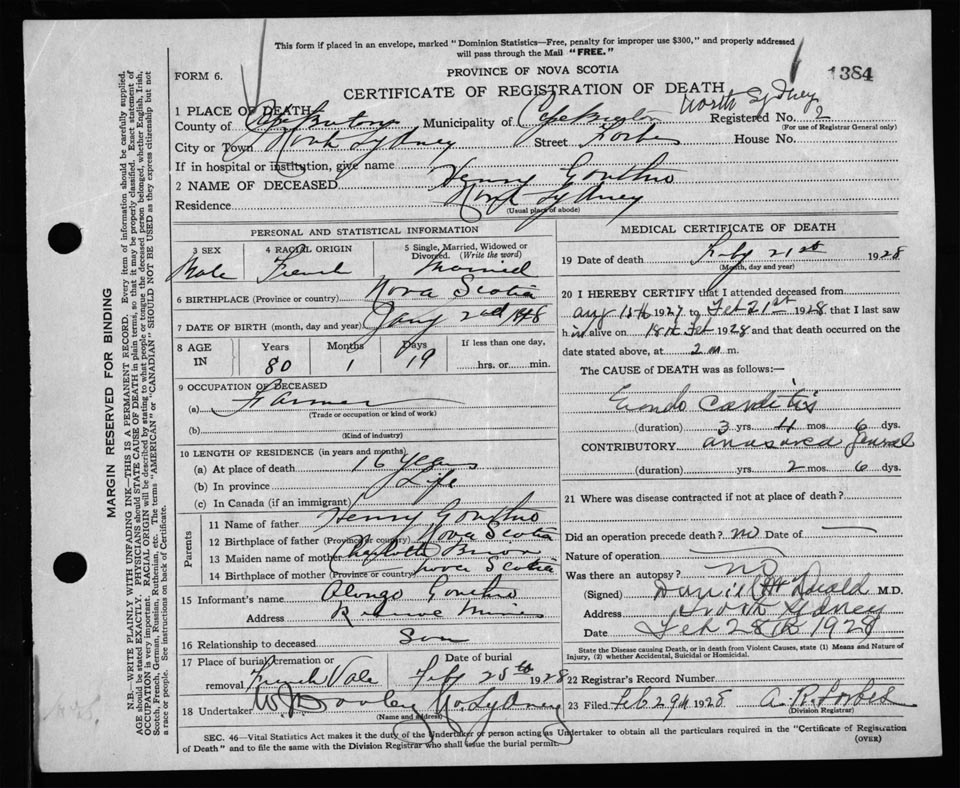 This form if placed in an envelope, marked "Dominion Statistics—Free, penalty for improper use $300," and properly addressed
will pass through the Mail "FREE."
FORM 6.
PROVINCE OF NOVA SCOTIA
1384
CERTIFICATE OF REGISTRATION OF DEATH
North Sydney
1 PLACE OF DEATH
County of Cape Breton Municipality of Cape Breton Registered No. 2
(For use of Registrar General only)
City or Town North Sydney Street Forbes House No.
If in hospital or institution, give name
2 NAME OF DECEASED Henry Gouthro
Residence North Sydney
(Usual place of abode)
PERSONAL AND STATISTICAL INFORMATION
3 SEX Male
4 RACIAL ORIGIN French
5 Single, Married, Widowed or Divorced. (Write the word) Married
6 BIRTHPLACE (Province or country) Nova Scotia
7 DATE OF BIRTH (month, day and year) Jany 2nd 1848
8 AGE IN Years 80 Months 1 Days 19 If less than one day, hrs. or min.
9 OCCUPATION OF DECEASED
(a) Farmer
(Trade or occupation or kind of work)
(b)
(Kind of industry)
10 LENGTH OF RESIDENCE (in years and months)
(a) At place of death 16 years
(b) In province Life
(c) In Canada (if an immigrant)
Parents
11 Name of father Henry Gouthro
12 Birthplace of father (Province or country) Nova Scotia
13 Maiden name of mother Charlotte
14 Birthplace of mother (Province or country) Nova Scotia
15 Informant's name Alonzo Gouthro
Address Mines
16 Relationship to deceased Son
17 Place of burial, cremation or removal French Vale Date of burial Feby 25th 1928
18 Undertaker W J Dooley No. Sydney
(Name and address)
MEDICAL CERTIFICATE OF DEATH
19 Date of death Feby 21st 1928
(Month, day and year)
20 I HEREBY CERTIFY that I attended deceased from
Aug 15th 1927 to Feb 21st 1928 that I last saw
him alive on 18th Feb 1928 and that death occurred on the
date stated above, at 2 m.
The CAUSE of DEATH was as follows:—
Endo Carditis
(duration) 3 yrs. 4 mos. 6 dys.
CONTRIBUTORY anasarca general
(duration) yrs. 2 mos. 6 dys.
21 Where was disease contracted if not at place of death?
Did an operation precede death? no Date of
Nature of operation
Was there an autopsy? no
(Signed) Daniel McDonald M.D.
Address North Sydney
Date Feb 28th 1928
State the Disease causing Death, or in death from Violent Causes, state (1) Means and Nature of
Injury, (2) whether Accidental, Suicidal or Homicidal.
22 Registrar's Record Number
23 Filed Feb 29th 1928 A. R. Forbes
(Division Registrar)
SEC. 46—Vital Statistics Act makes it the duty of the Undertaker or person acting as Undertaker to obtain all the particulars required in the "Certificate of Registration
of Death" and to file the same with the Division Registrar who shall issue the burial permit.
(OVER)
MARGIN RESERVED FOR BINDING
N.B.—WRITE PLAINLY, WITH UNFADING INK—THIS IS A PERMANENT RECORD. Every item of information should be carefully supplied.
AGE should be stated EXACTLY. PHYSICIANS should STATE CAUSE OF DEATH in plain terms, so that it may be properly classified. Exact statement of
OCCUPATION is very important. RACIAL ORIGIN will be described by stating to what people or tongue the deceased person belonged, whether English, Irish,
Scotch, French, German, Russian, Ruthenian, etc. The terms "AMERICAN" or "CANADIAN" SHOULD NOT BE USED as they express citizenship but not
a race or people. See instructions on back of Certificate.